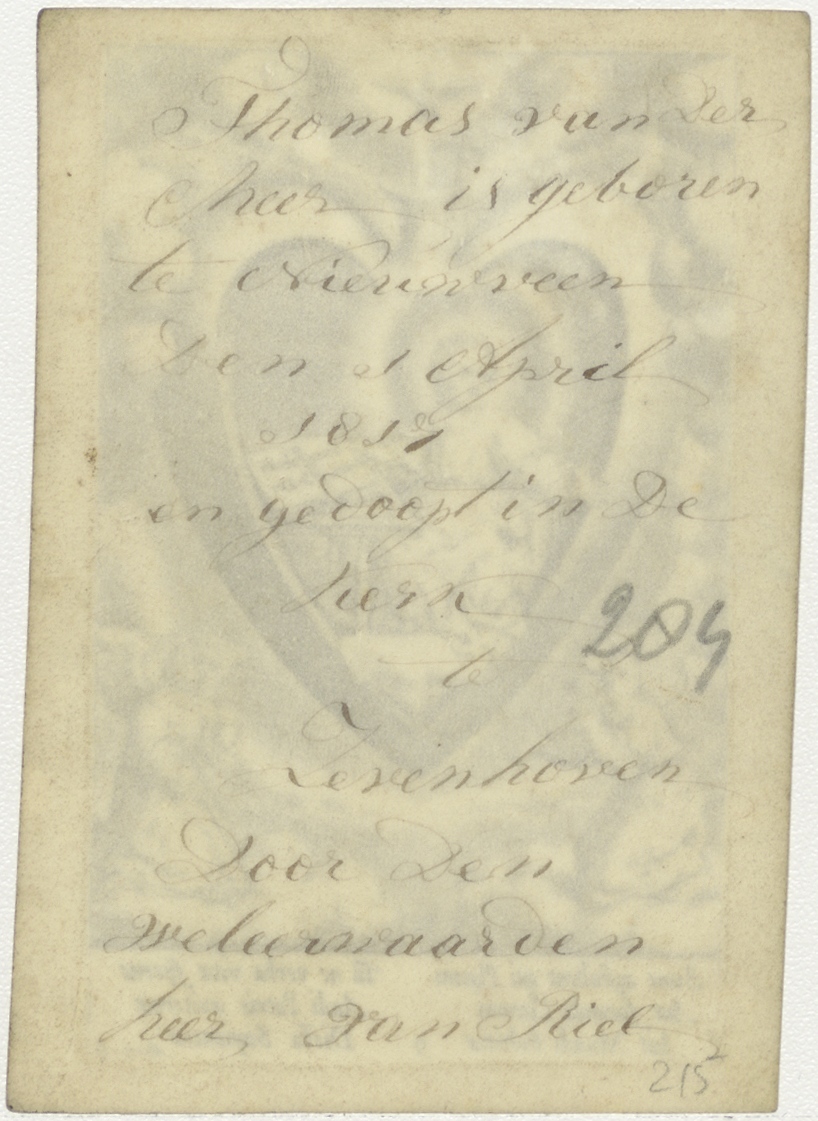 Thomas van der
heer is geboren
te Nieuwveen
Den 1 April
1817
en gedoopt in De
kerk
204
te
Zevenhoven
Door Den
weleerwaarden
heer van Riel
215